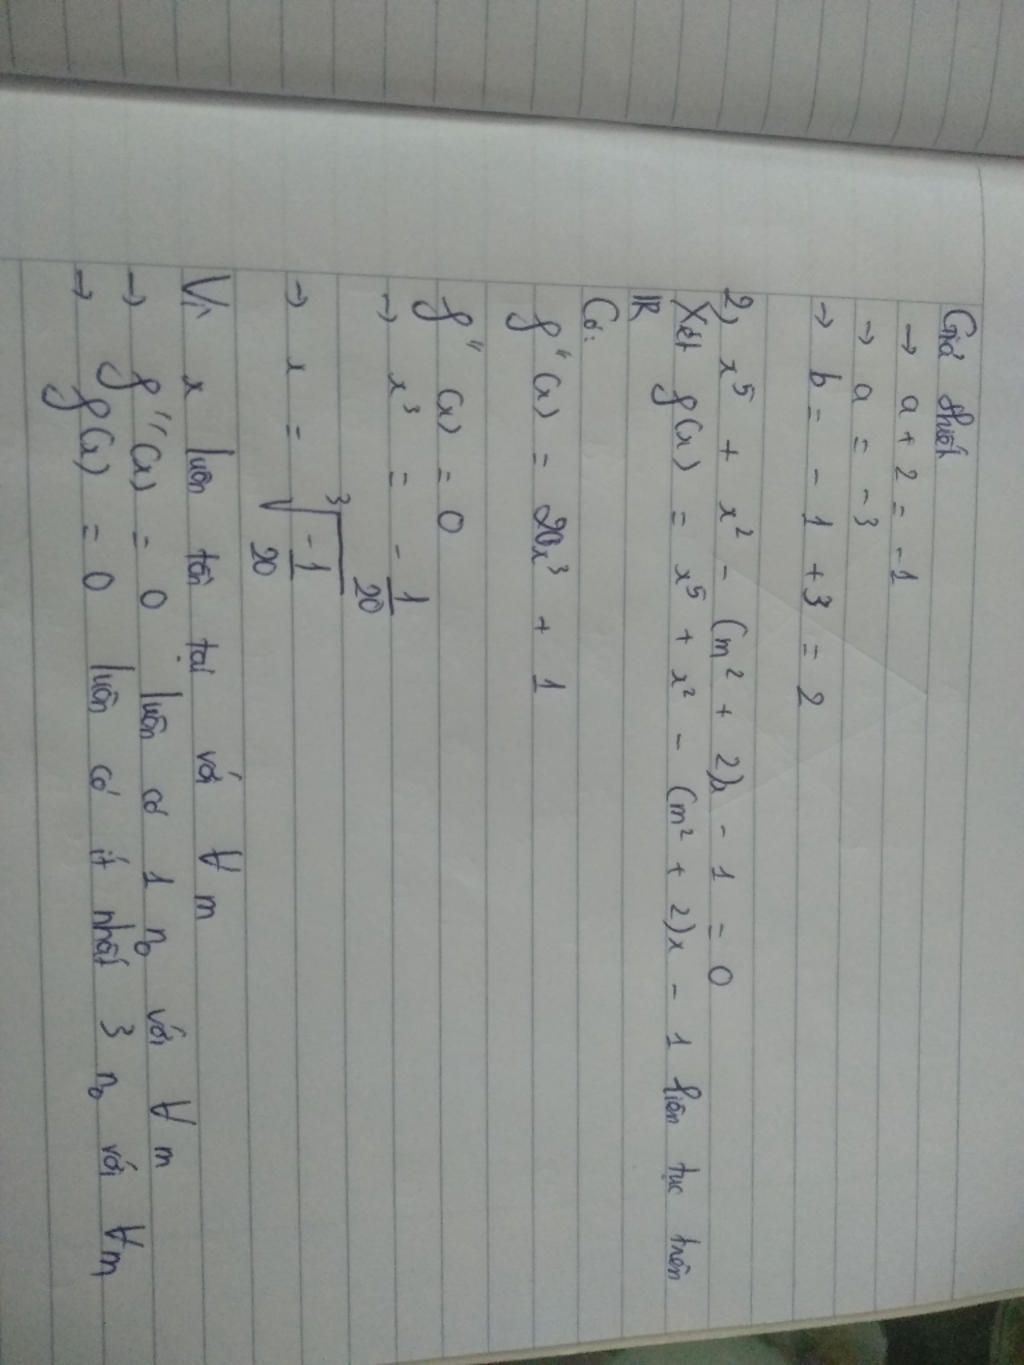 Giả thiết
→ a + 2 = -1
→ a = -3
→ b = -1 + 3 = 2
2, x⁵ + x² - (m² + 2)x - 1 = 0
Xét f(x) = x⁵ + x² - (m² + 2)x - 1 liên tục trên
ℝ
Có:
f''(x) = 20x³ + 1
f''(x) = 0
→ x³ = -1/20
→ x = ∛(-1/20)
Vì x luôn tồn tại với ∀m
→ f''(x) = 0 luôn có 1 n₀ với ∀m
→ f(x) = 0 luôn có ít nhất 3 n₀ với ∀m